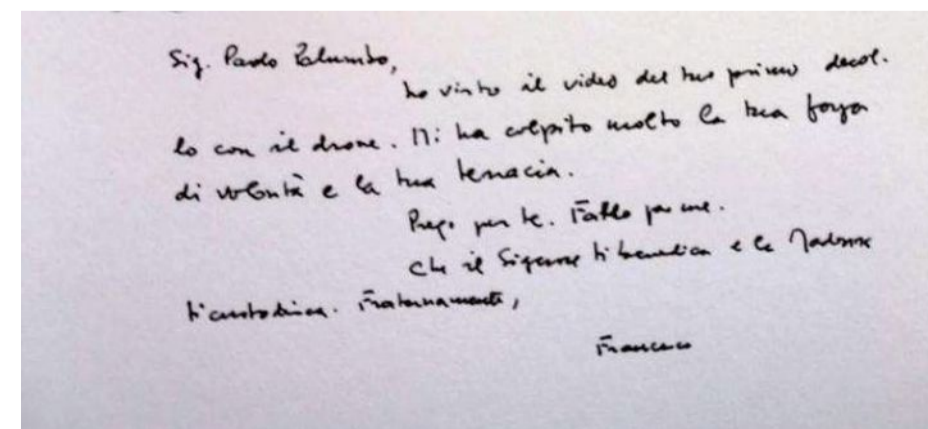 Sig. Paolo Palumbo,
ho visto il video del tuo primo decol.
lo con il drone. Mi ha colpito molto la tua forza
di volontà e la tua tenacia.
Prego per te. Fallo per me.
Che il Signore ti benedica e la Madonna
ti custodisca. Fraternamente,
Francesco